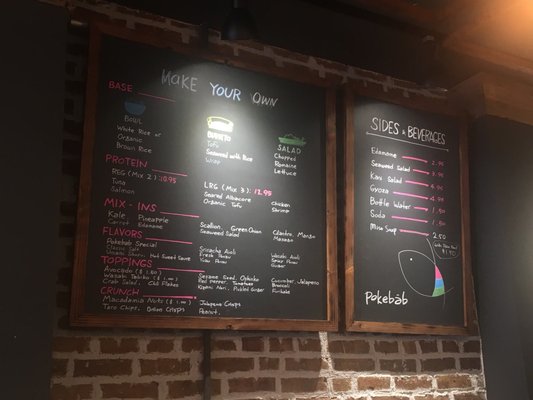 MAKE YOUR OWN
BASE
BOWL
White Rice or
Organic
Brown Rice
BURRITO
Tofu
Seaweed with Rice
Wrap
SALAD
Chopped
Romaine
Lettuce
PROTEIN
REG (Mix 2): 10.95
Tuna
Salmon
LRG (Mix 3): 12.95
Seared Albacore
Organic Tofu
Chicken
Shrimp
MIX - INS
Kale, Pineapple
Carrot Edamame
Scallion, Green Onion
Seaweed Salad
Cilantro, Mango
FLAVORS
Pokebab Special
Classic Salt
Sweet Soy
Sriracha Aioli
Wasabi Aioli
TOPPINGS
Avocado ($ 1.50)
Wasabi Tobiko ($ 1.00)
Crab Salad, Chili Flakes
Sesame Seed, Oshinko
Red Pepper, Tomatoes
Kizami Nori, Pickled Ginger
Cucumber, Jalapeno
Broccoli
Furikake
CRUNCH
Macadamia Nuts ($ 1.00)
Taro Chips, Onion Crisps
Jalapeno Crisps
Peanut,
SIDES & BEVERAGES
Edamame 2.95
Seaweed Salad 3.95
Kani Salad 4.95
Gyoza 4.95
Bottle Water 1.50
Soda 1.50
Miso Soup 2.50
$1.90
Pokebab